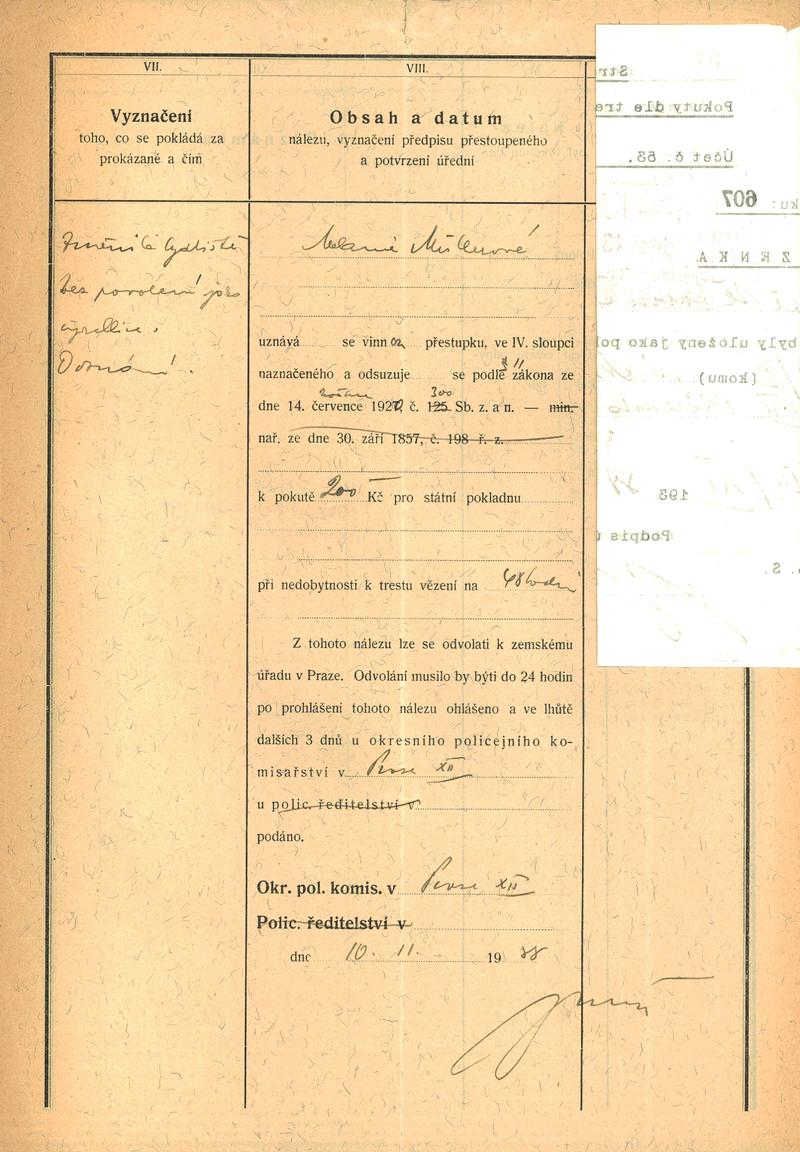 VII.
Vyznačení
toho, co se pokládá za
prokázané a čím
bez povolení
VIII.
Obsah a datum
nálezu, vyznačení předpisu přestoupeného
a potvrzení úřední
uznává se vinn ou přestupku, ve IV. sloupci
naznačeného a odsuzuje se podle § 11 zákona ze
dne 14. července 192 č. 125 300 Sb. z. a n. — min.
nař. ze dne 30. září 1857, č. 198 ř. z.
k pokutě 200 Kč pro státní pokladnu
při nedobytnosti k trestu vězení na 48 hodin
Z tohoto nálezu lze se odvolati k zemskému
úřadu v Praze. Odvolání musilo by býti do 24 hodin
po prohlášení tohoto nálezu ohlášeno a ve lhůtě
dalších 3 dnů u okresního policejního ko-
misařství v Praze XII
u polic. ředitelství v
podáno.
Okr. pol. komis. v Praze XII
Polic. ředitelství v
dne 10. 11. 19 38
Str
Pokuty dle tre
Účet č. 53.
ku: 607
ZENKA
byly uloženy jako po
(komu)
193
Podpis
. S.